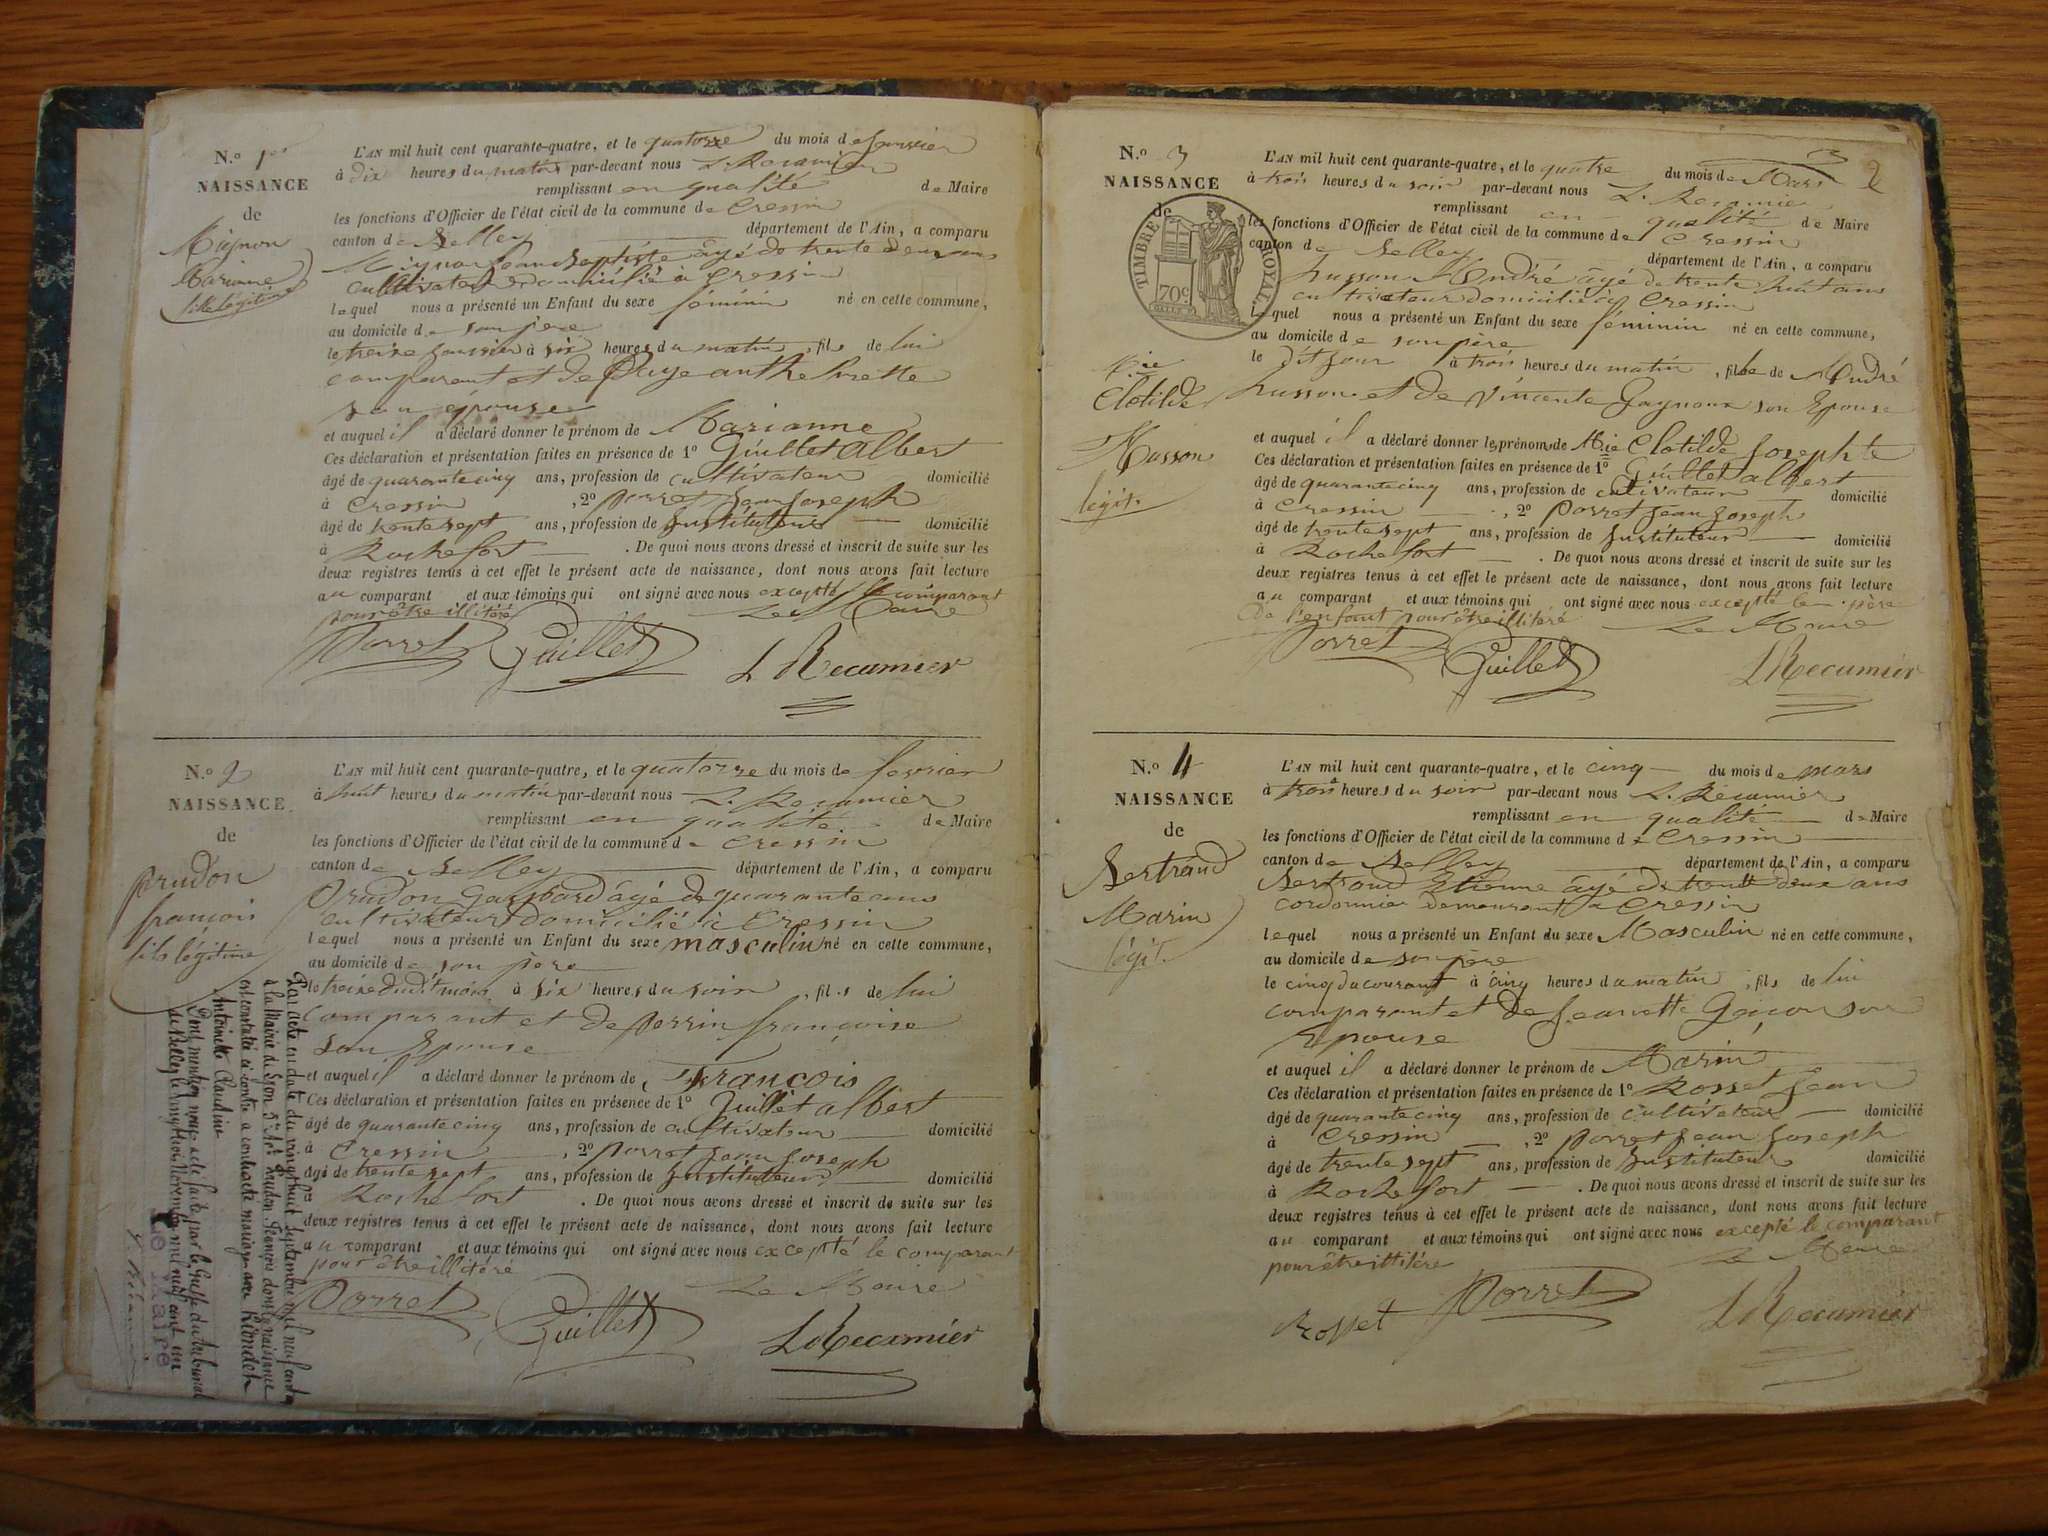 N.º 1er
NAISSANCE
de
Mignon
Marianne
fille légitime
L'AN mil huit cent quarante-quatre, et le quatorze du mois de janvier
à dix heures du matin par-devant nous L. Recamier
remplissant en qualité de Maire
les fonctions d'Officier de l'état civil de la commune de Cressin
canton de Belley département de l'Ain, a comparu
Mignon Jean Baptiste âgé de trente deux ans
cultivateur domicilié à Cressin
lequel nous a présenté un Enfant du sexe féminin né en cette commune,
au domicile de son père
le treize janvier à six heures du matin, fils de lui
comparant et de anthelmette
son épouse
et auquel il a déclaré donner le prénom de Marianne
Ces déclaration et présentation faites en présence de 1º Guillet Albert
âgé de quarante cinq ans, profession de cultivateur domicilié
à Cressin, 2º Porret Jean Joseph
âgé de trente sept ans, profession de Instituteur domicilié
à Rochefort. De quoi nous avons dressé et inscrit de suite sur les
deux registres tenus à cet effet le présent acte de naissance, dont nous avons fait lecture
au comparant et aux témoins qui ont signé avec nous excepté le comparant
pour être illitéré Le Maire
Porret Guillet L Recamier
N.º 2
NAISSANCE
de
Prudon
françois
fils légitime
L'AN mil huit cent quarante-quatre, et le quatorze du mois de fevrier
à huit heures du matin par-devant nous L. Recamier
remplissant en qualité de Maire
les fonctions d'Officier de l'état civil de la commune de Cressin
canton de Belley département de l'Ain, a comparu
Prudon Gaspard âgé de quarante ans
cultivateur domicilié à Cressin
lequel nous a présenté un Enfant du sexe masculin né en cette commune,
au domicile de son père
le treize dudit mois à six heures du soir, fils de lui
comparant et de Perrin françoise
son Epouse
et auquel il a déclaré donner le prénom de François
Ces déclaration et présentation faites en présence de 1º Guillet albert
âgé de quarante cinq ans, profession de cultivateur domicilié
à Cressin, 2º Porret Jean Joseph
âgé de trente sept ans, profession de Instituteur domicilié
à Rochefort. De quoi nous avons dressé et inscrit de suite sur les
deux registres tenus à cet effet le présent acte de naissance, dont nous avons fait lecture
au comparant et aux témoins qui ont signé avec nous excepté le comparant
pour être illitéré
Le Maire
Porret Guillet L Recamier
Par acte en date du vingt huit Septembre mil neuf cent
à la Mairie de Lyon 3me Arrt Prudon François dont la naissance
est constatée ci-contre a contracté mariage avec
Antoinette Claudine
Dont mention nous a été faite par le Greffe du tribunal
de Belley le Novembre mil neuf cent un
Le Maire
N.º 3
NAISSANCE
de
Mie
Clotilde
Husson
légit.
2
TIMBRE ROYAL
70 c.
L'AN mil huit cent quarante-quatre, et le quatre du mois de Mars
à trois heures du soir par-devant nous L. Recamier
remplissant en qualité de Maire
les fonctions d'Officier de l'état civil de la commune de Cressin
canton de Belley département de l'Ain, a comparu
husson André âgé de trente huit ans
cultivateur domicilié à Cressin
Lequel nous a présenté un Enfant du sexe féminin né en cette commune,
au domicile de son père
le dit jour à trois heures du matin, fille de André
husson et de Vincente son Epouse
et auquel il a déclaré donner le prénom de Mrie Clotilde Josephte
Ces déclaration et présentation faites en présence de 1º Guillet albert
âgé de quarante cinq ans, profession de cultivateur domicilié
à Cressin, 2º Porret Jean Joseph
âgé de trente sept ans, profession de Instituteur domicilié
à Rochefort. De quoi nous avons dressé et inscrit de suite sur les
deux registres tenus à cet effet le présent acte de naissance, dont nous avons fait lecture
au comparant et aux témoins qui ont signé avec nous excepté le père
De l'enfant pour être illitéré Le Maire
Porret Guillet L Recamier
N.º 4
NAISSANCE
de
Bertrand
Marin
légit.
L'AN mil huit cent quarante-quatre, et le cinq du mois de mars
à trois heures du soir par-devant nous L. Récamier
remplissant en qualité de Maire
les fonctions d'Officier de l'état civil de la commune de Cressin
canton de Belley département de l'Ain, a comparu
Bertrand Etienne âgé de trente deux ans
cordonnier demeurant a Cressin
lequel nous a présenté un Enfant du sexe Masculin né en cette commune,
au domicile de son père
le cinq du courant à cinq heures du matin, fils de lui
comparant et de Jeanette son
Epouse
et auquel il a déclaré donner le prénom de Marin
Ces déclaration et présentation faites en présence de 1º Rosset Jean
âgé de quarante cinq ans, profession de cultivateur domicilié
à Cressin, 2º Porret Jean Joseph
âgé de trente sept ans, profession de Instituteur domicilié
à Rochefort. De quoi nous avons dressé et inscrit de suite sur les
deux registres tenus à cet effet le présent acte de naissance, dont nous avons fait lecture
au comparant et aux témoins qui ont signé avec nous excepté le comparant
pour être illitéré Le Maire
Rosset Porret L Recamier